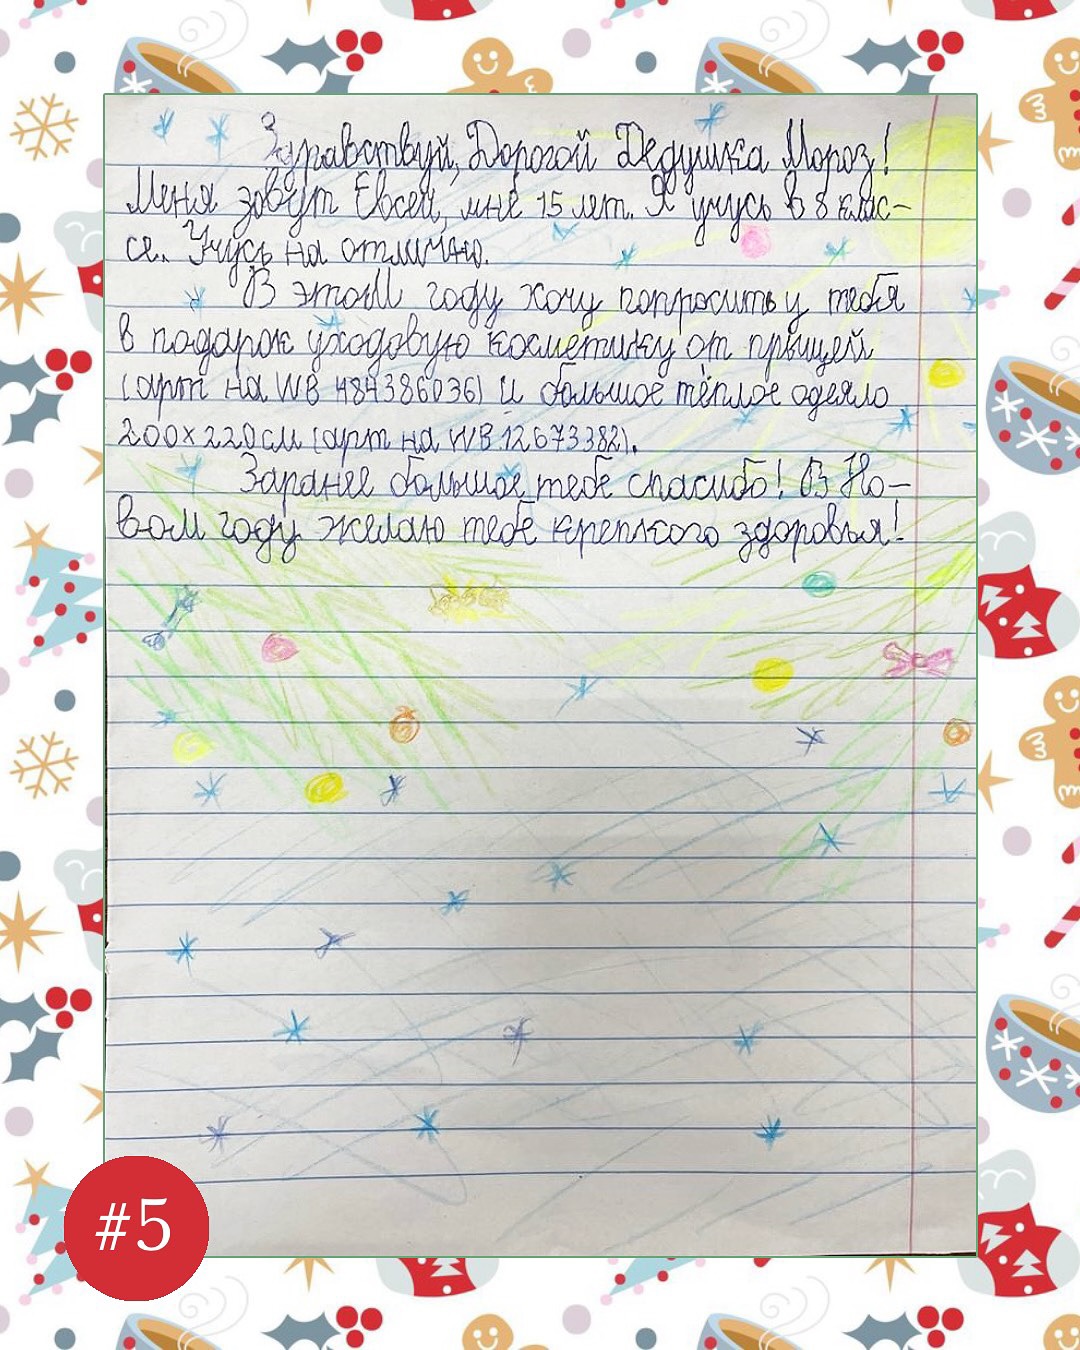 Здравствуй, Дорогой Дедушка Мороз!
Меня зовут Евсей, мне 15 лет. Я учусь в 8 клас-
се. Учусь на отлично.
В этом году хочу попросить у тебя
в подарок уходовую косметику от прыщей
(арт на WB 484386036) и большое тёплое одеяло
200х220см (арт на WB 12673382).
Заранее большое тебе спасибо! В Но-
вом году желаю тебе крепкого здоровья!
#5